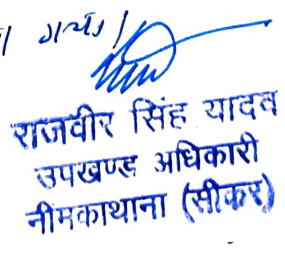 गया।
राजवीर सिंह यादव
उपखण्ड अधिकारी
नीमकाथाना (सीकर)